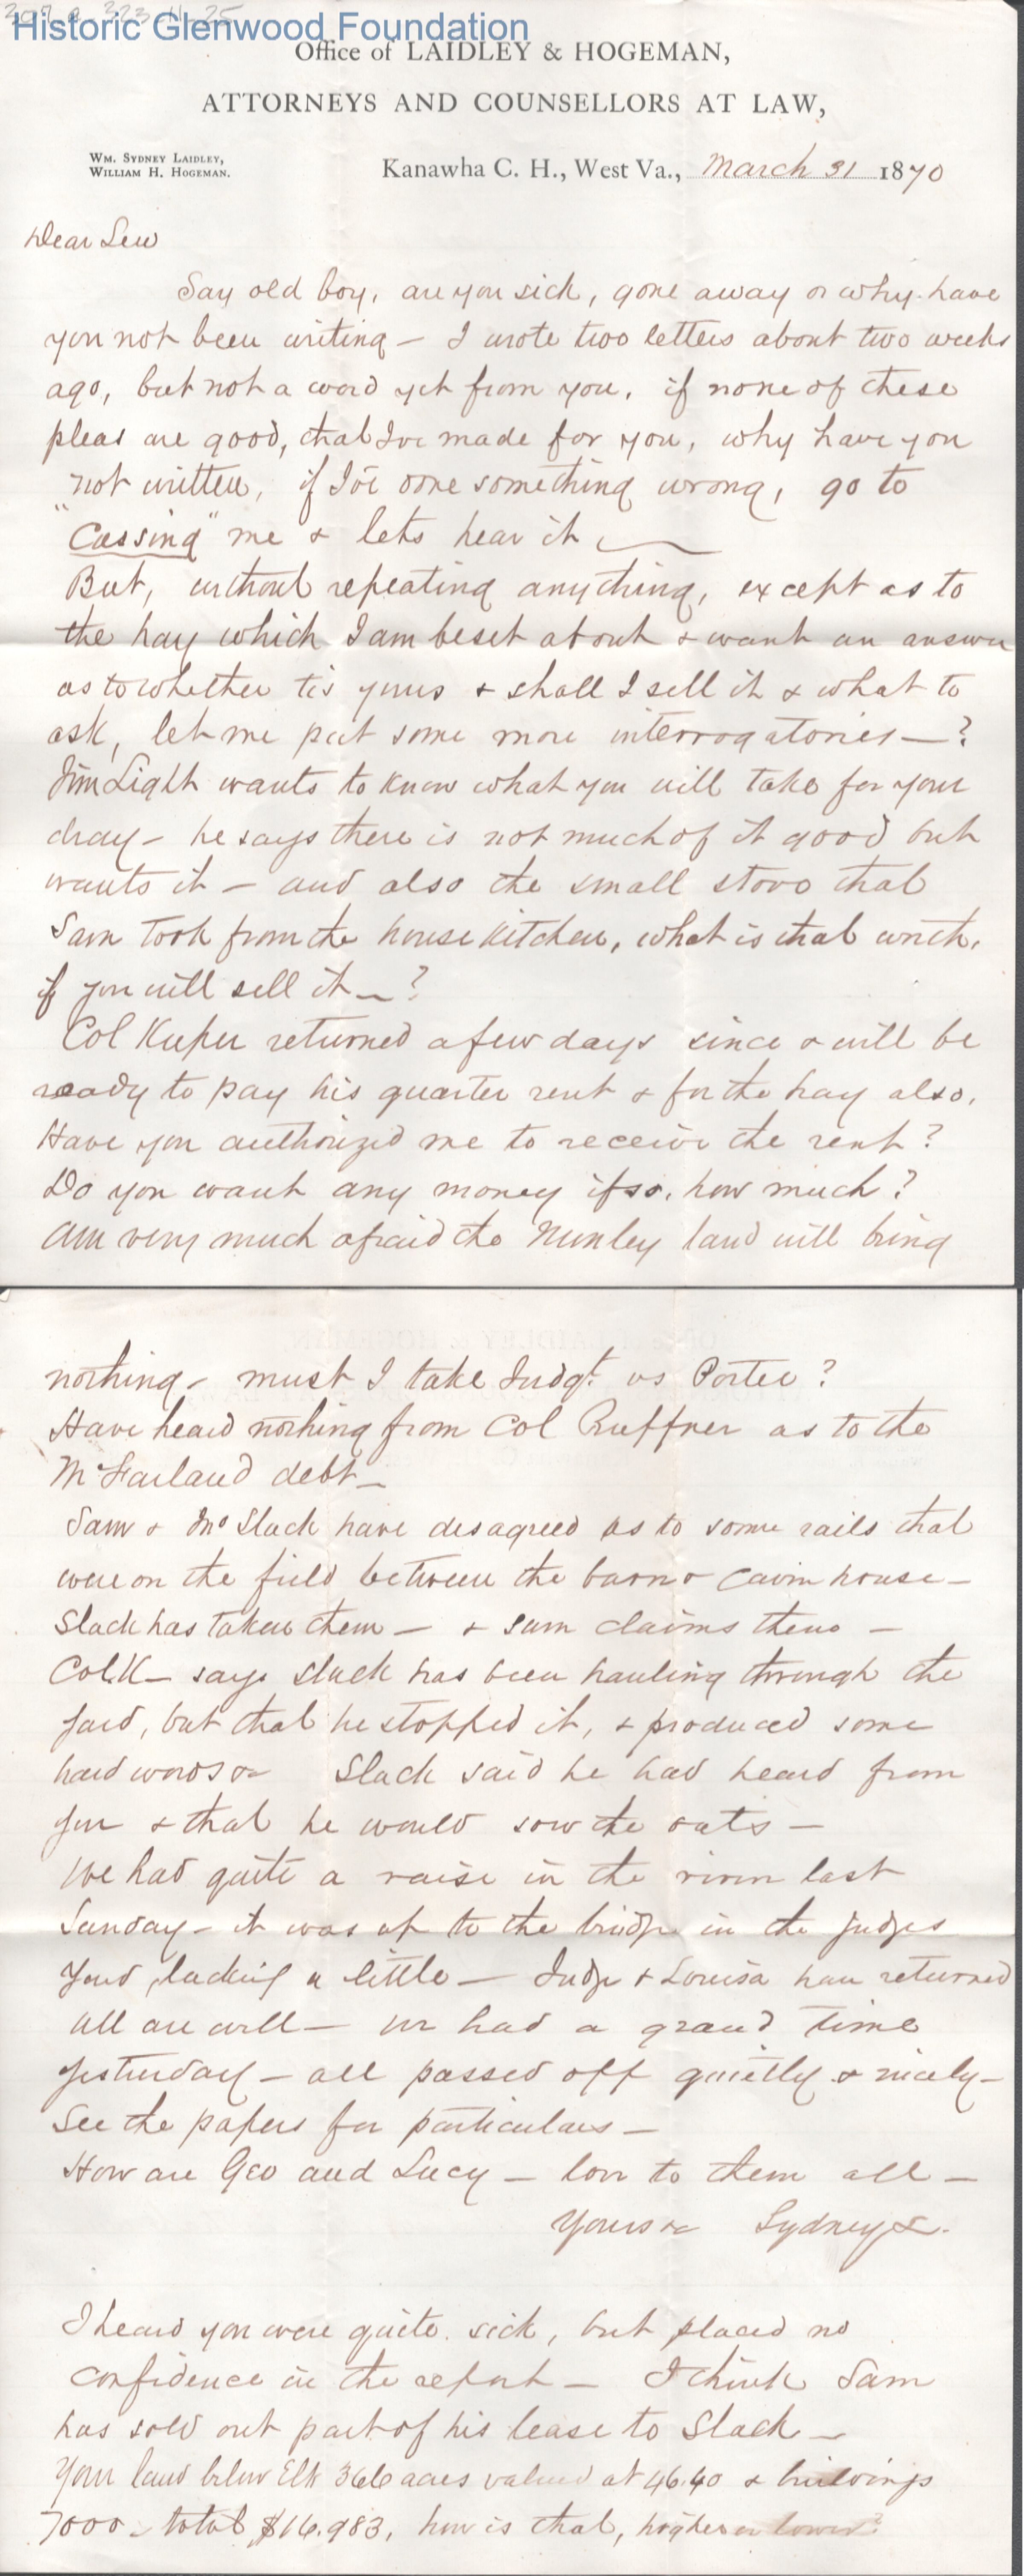 Historic Glenwood Foundation
Office of LAIDLEY & HOGEMAN,
ATTORNEYS AND COUNSELLORS AT LAW,
WM. SYDNEY LAIDLEY,
WILLIAM H. HOGEMAN.
Kanawha C. H., West Va., March 31 1870
Dear Lew
Say old boy, are you sick, gone away or why have
you not been writing — I wrote two letters about two weeks
ago, but not a word yet from you, if none of these
pleas are good, that I've made for you, why have you
not written, if I've done something wrong, go to
"Cussing" me & lets hear it
But, without repeating anything, except as to
the hay which I am beset about & want an answer
as to whether tis yours & shall I sell it & what to
ask, let me put some more interrogatories — ?
Jim Light wants to know what you will take for your
dray — he says there is not much of it good but
wants it — and also the small stove that
Sam took from the house kitchen, what is that worth,
if you will sell it — ?
Col Keiper returned a few days since & will be
ready to pay his quarter rent & for the hay also.
Have you authorized me to receive the rent?
Do you want any money if so, how much?
Am very much afraid the Nunley land will bring
nothing — must I take Judgt. vs Porter?
Have heard nothing from Col Ruffner as to the
McFarland debt —
Sam & Jno Slack have disagreed as to some rails that
were on the field between the barn & house —
Slack has taken them — & Sam claims them —
Col. K — says Slack has been hauling through the
yard, but that he stopped it, & produced some
hard words &c Slack said he had heard from
you & that he would sow the oats —
We had quite a raise in the river last
Sunday — it was up to the bridge in the Judges
yard, lacking a little — Judge & Louisa have returned
all are well — we had a grand time
yesterday — all passed off quietly & nicely —
See the papers for particulars —
How are Geo and Lucy — love to them all —
Yours &c Sydney L.
I heard you were quite sick, but placed no
confidence in the report — I think Sam
has sold out part of his lease to Slack —
Your land below Elk 366 acres valued at 46.40 & buildings
7000 — total $16.983, how is that, higher or lower?